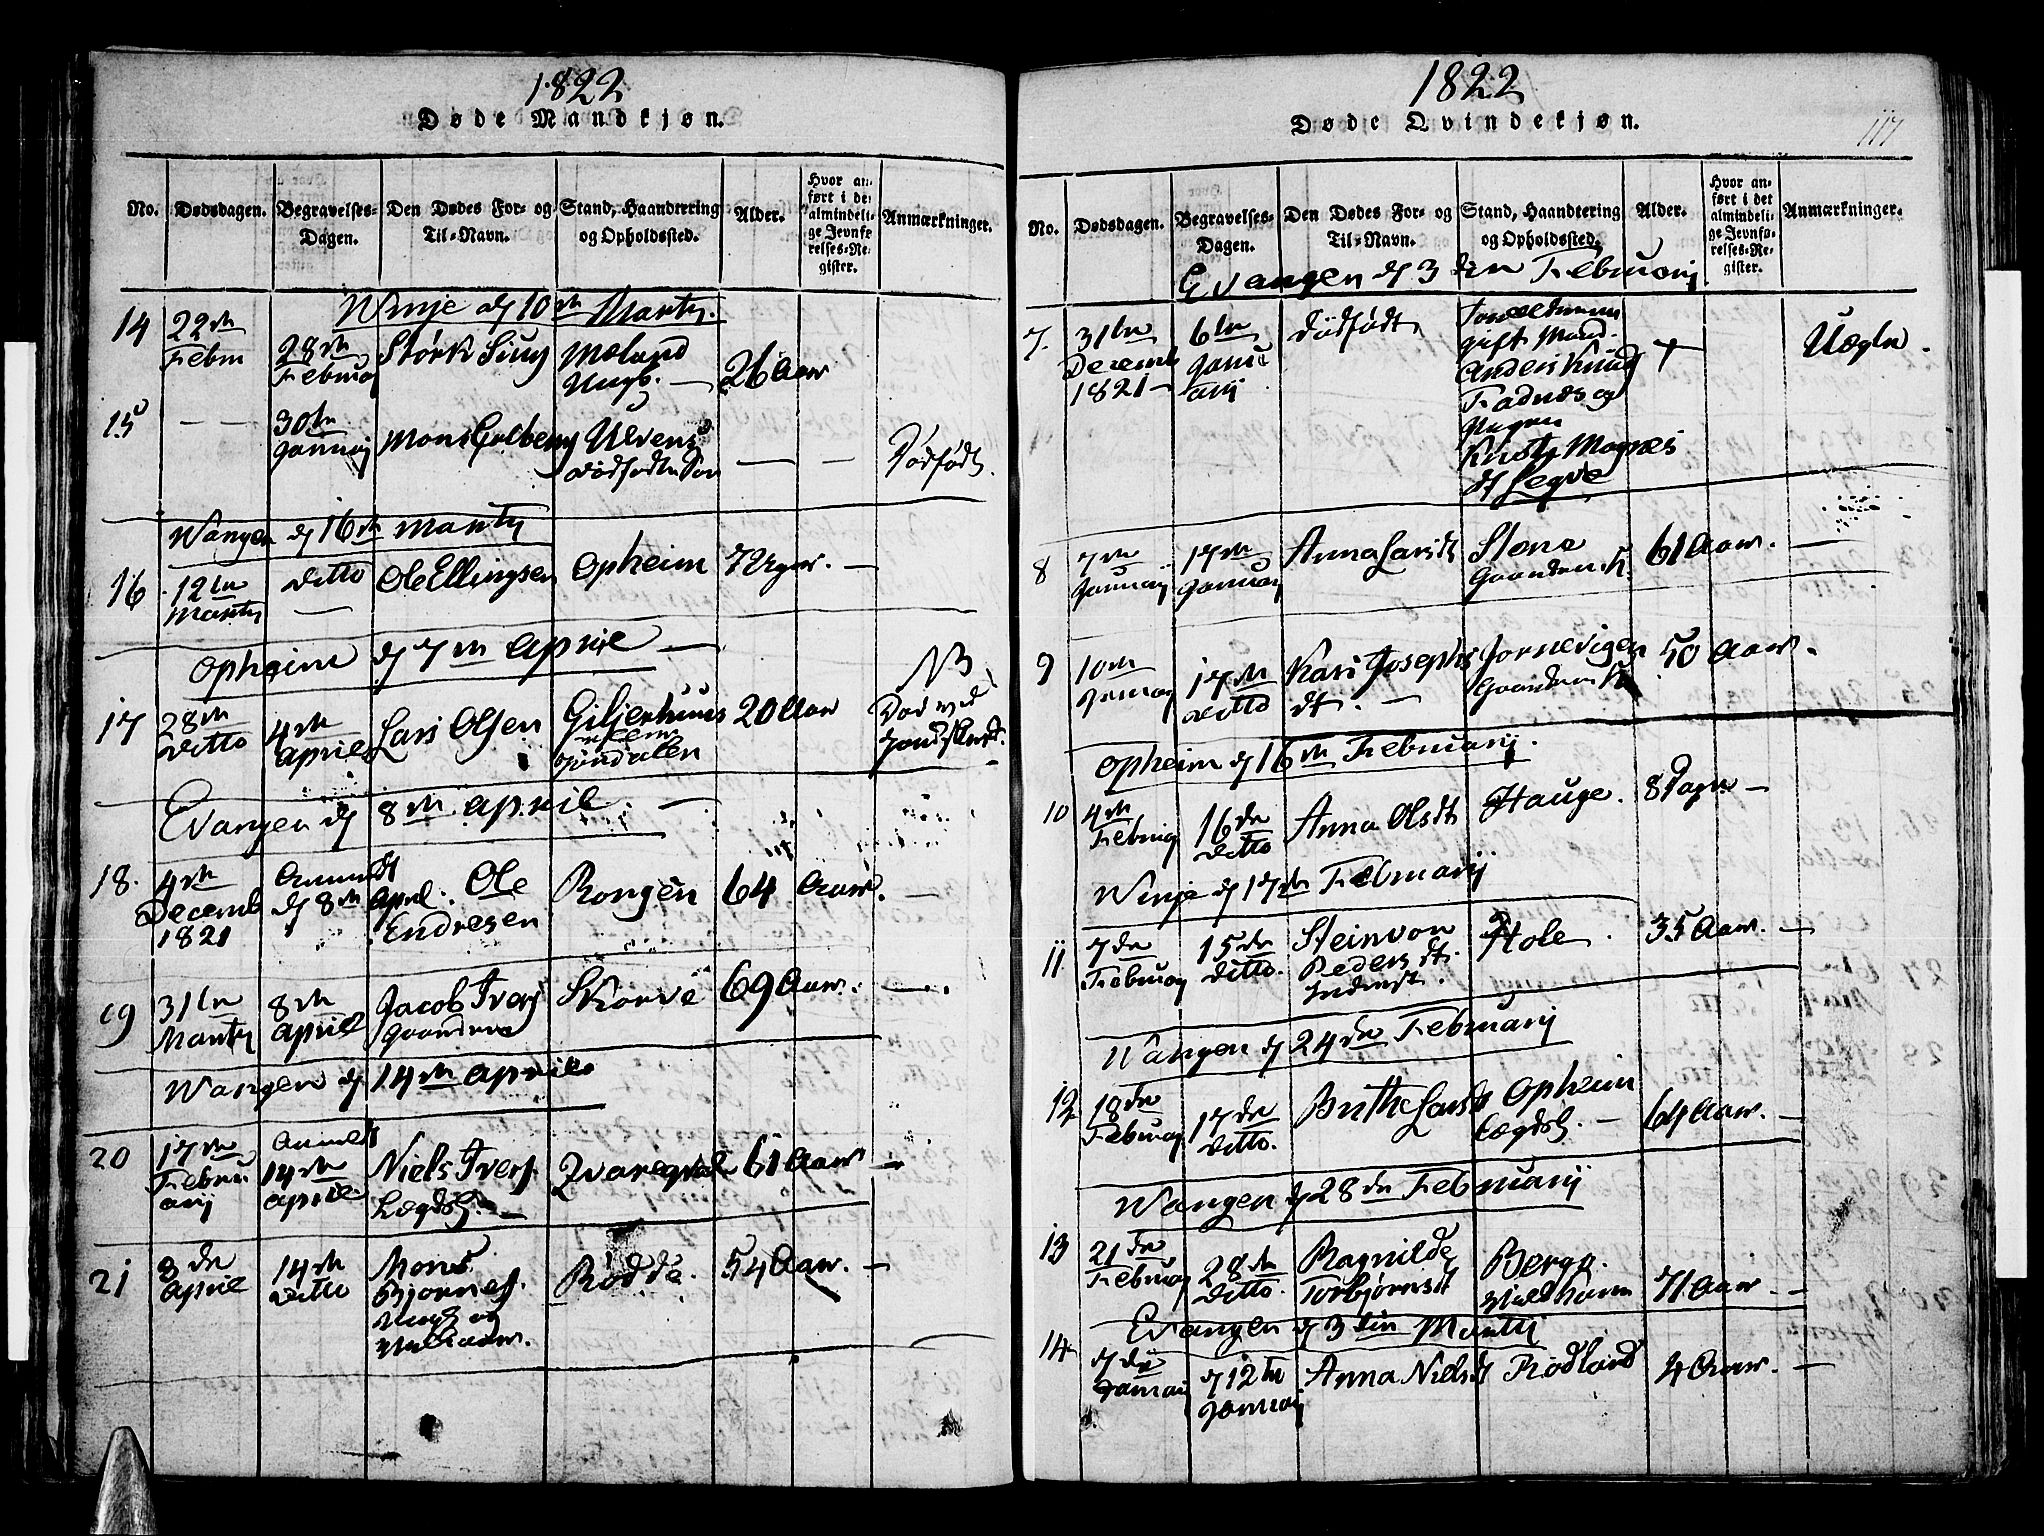 1822
Døde Mandkjøn.
No. Dødsdagen. Begravelses-Dagen. Den Dødes For- og Til-Navn. Stand, Haandtering og Opholdssted. Alder. Hvor anført i de almindelige Jevnførelses-Register. Anmærkninger.
Winje d 10de Martij.
14 22de Febru 28de Februa Størk Siu Mæland Ungk. — 26 Aar
15 — — 30te Januarij Mons Golberg Ulvens dødfødte Søn — — Dødfødt.
Wangen d 16de Martij
16 12te Martij Ditto — Ole Ellingsen Opheim 72 — 
Opheim d 7de April —
17 28de Ditto 4de April Lars Olsen Giljarhuus 20 Aar NB Død ved
Evangen d 8de April —
18. 4de Decemb 1821 Anmeldt d 8de April. Ole Endresen Rongen 64 Aar. —
19 31te Martij 8de April Jacob Ivers Gaardm Skorve 69 Aar. —
Wangen d 14de April
20 17de Februarij Anmeldt 14de April Niels Ivers Lægdsl. — 61 Aar —
21 3de April 14de Ditto Mons Bjørnes. og Rødde. 54 Aar. —
1822
Døde Qvindekjøn.
117
No. Dødsdagen. Begravelses-Dagen. Den Dødes For- og Til-Navn. Stand, Haandtering og Opholdssted. Alder. Hvor anført i det almindelige Jevnførelses-Register. Anmærkninger.
Evangen d 3den Februarij
7. 31te Decemb 1821 — 6te Januarij Dödfödt gift Mand Anders Knud Fadnes og Pigen Magnes dt Legve Uægte.
8 7de Januarij 17de Januarij Anna Larsdt Stena Gaardm K. 61 Aar. —
9 10de Januarij 17de Ditto Kari Josephs dt. — Jornevigen Gaardm K 50 Aar.
Opheim d 16de Februarij.
10 4de Februarij 16de Ditto Anna Olsdt Hauge. 8 Dage —
Winje d 17de Februarij
11 7de Februarij 15de Ditto. Steinvor Pedersdt. Inderst. Hole. 35 Aar. —
Wangen d 24de Februarij
12 18de Februarij 17de Ditto. Brithe Larsdt Opheim Lægdsl. — 64 Aar. —
Wangen d 28de Februarij
13 21de Februarij 28de Ditto. Ragnilde Torbjørnsdt Berge. 71 Aar. —
Evangen d 3die Martij
14 7de Januarij d 12te Januarij Anna Nielsdt Rødland 4 Aar. —